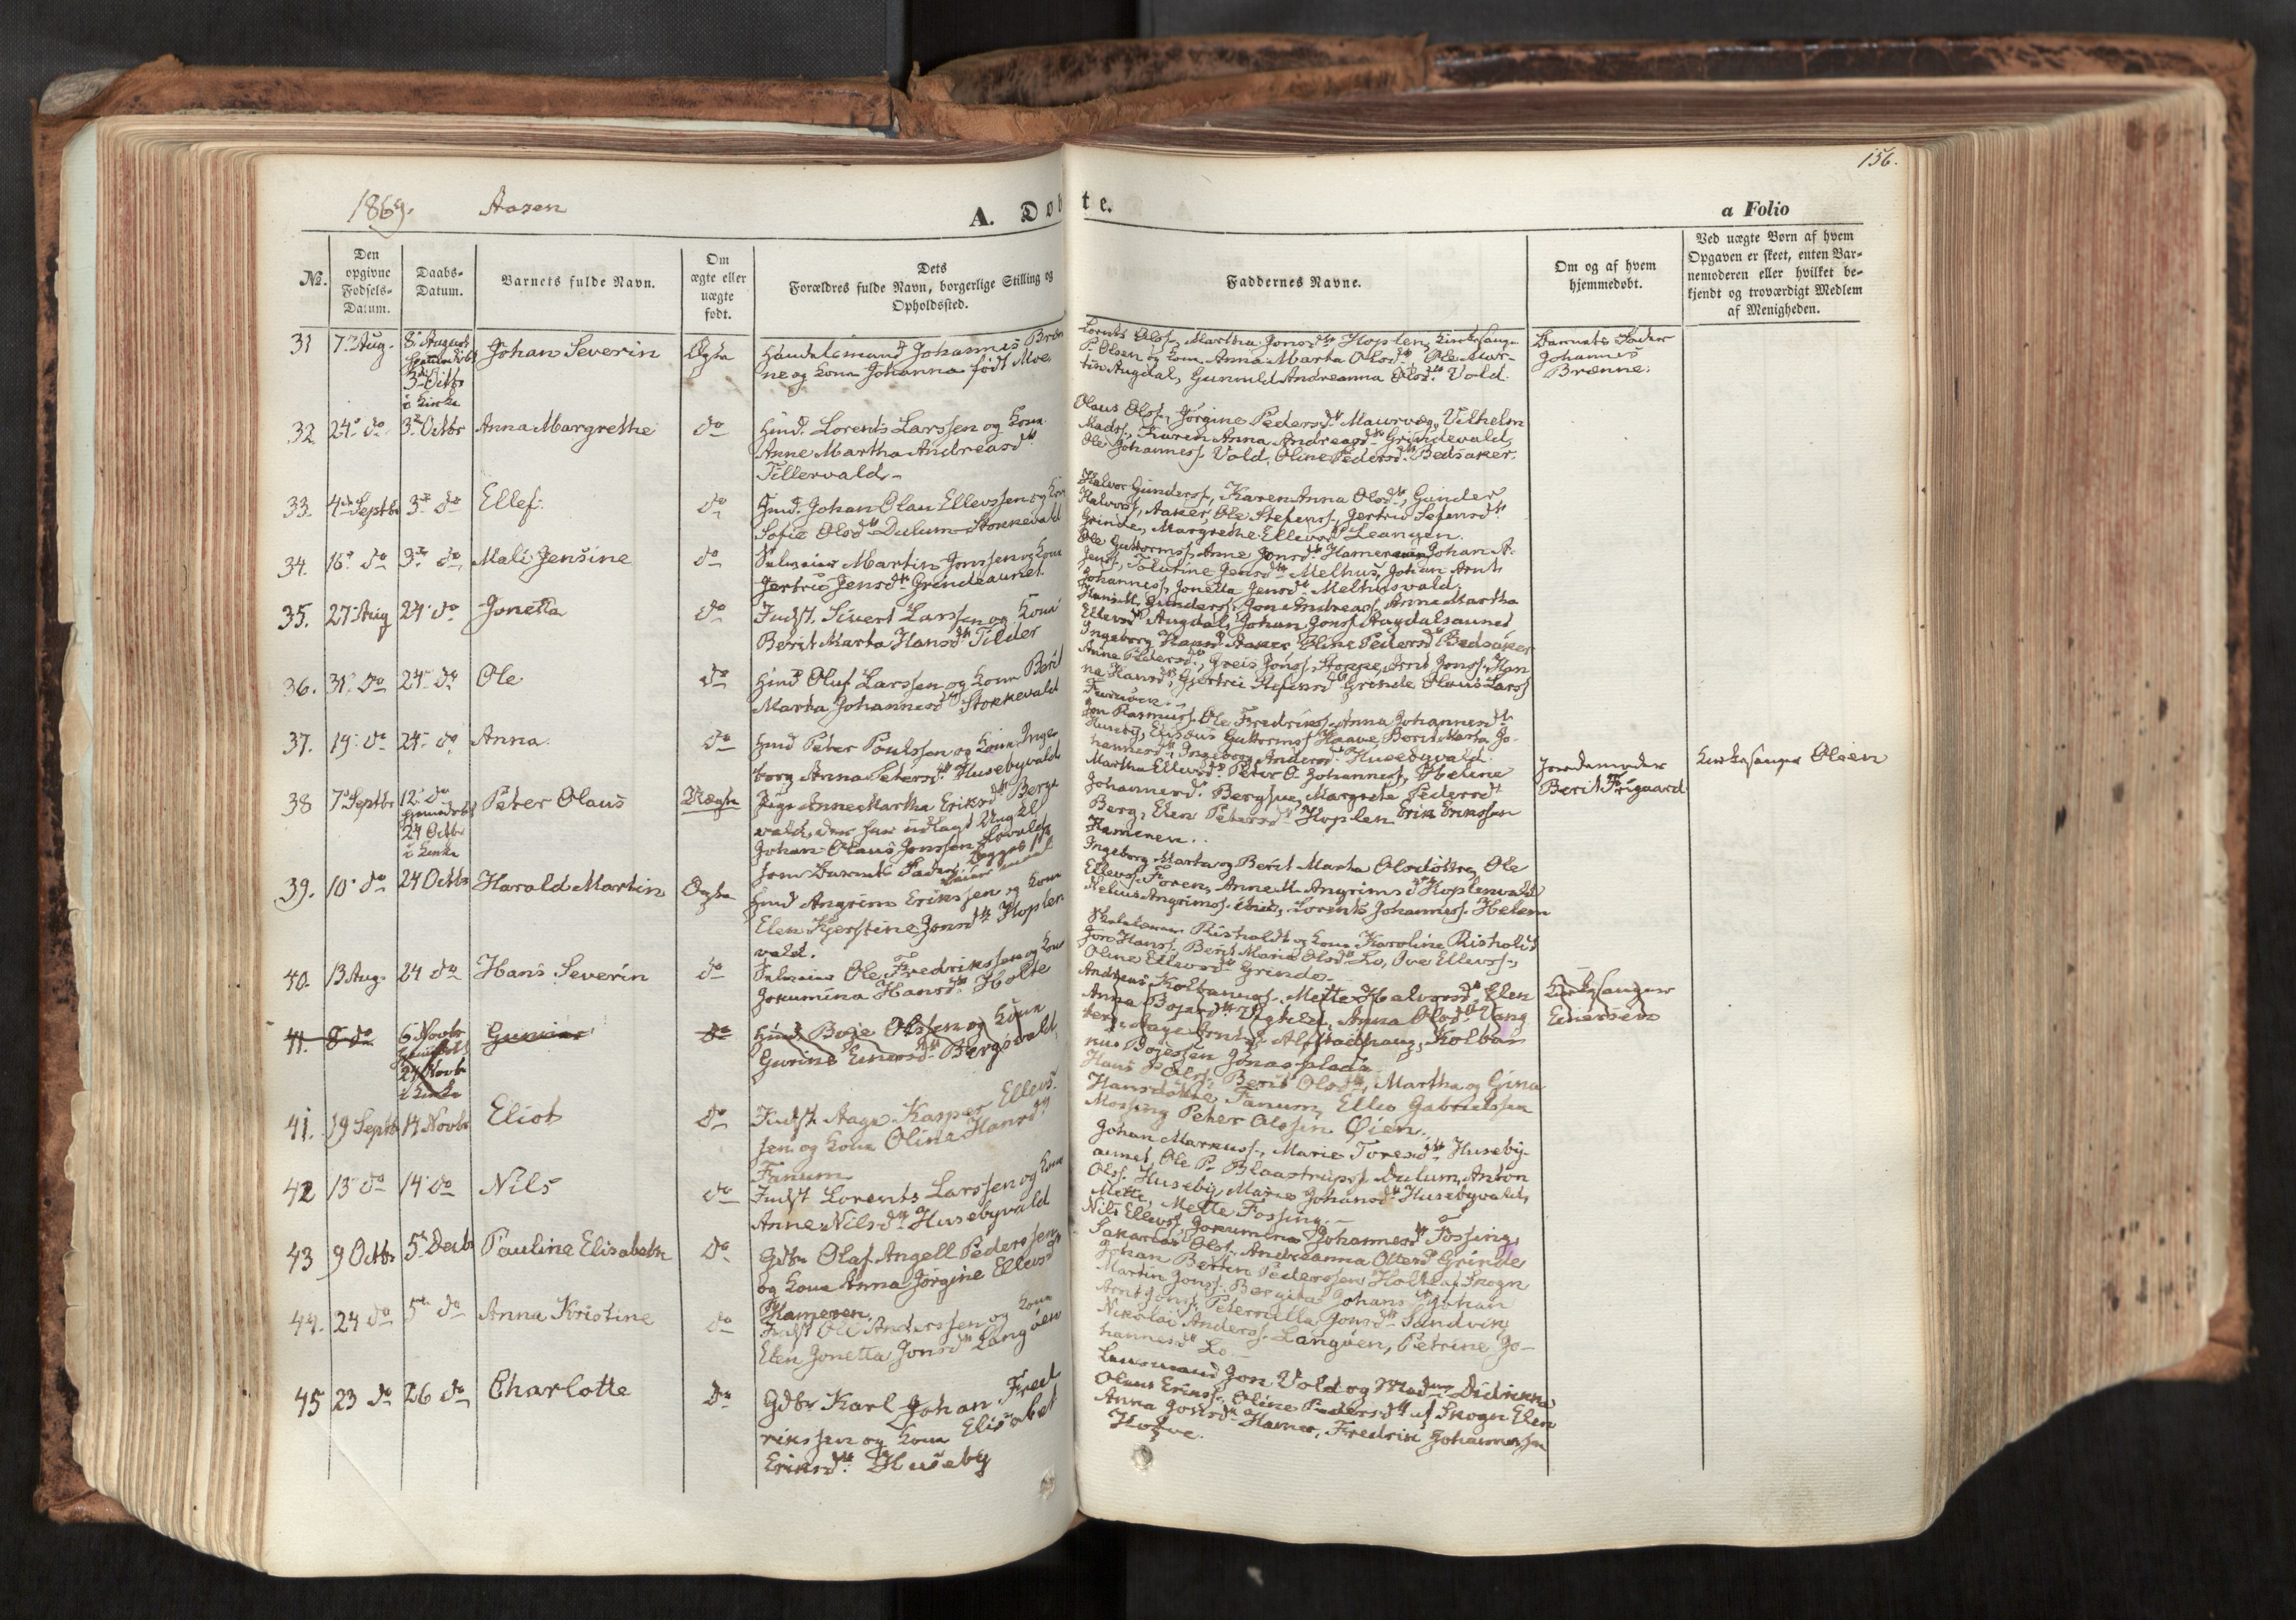 156.
1869.
Aasen
A. Døbte.
a Folio
No.
Den
opgivne
Fødsels-
Datum.
Daabs-
Datum.
Barnets fulde Navn.
Om
ægte eller
uægte
født.
Dets
Forældres fulde Navn, borgerlige Stilling og
Opholdssted.
Faddernes Navne.
Om og af hvem
hjemmedøbt.
Ved uægte Børn af hvem
Opgaven er skeet, enten Bar-
nemoderen eller hvilket be-
kjendt og troværdigt Medlem
af Menigheden.
31
7. Aug.
8. August
3 Octbr
i Kirke
Johan Severin
Ægte
Handelsmand Johannes Bræn
ne og Kone Johanna født Moe
Lorents Olss., Martha Jonsdtr Hoplen, Kirkesanger
P. Olsen og Kone Anna Marta Olsdtr Ole Mar-
tin Augdal, Gunnild Andreanna Olsdtr Vold.
Barnets Fader
Johannes
Brænne.
32
24. do
3. Octbr
Anna Margrethe
do
Hmd. Lorents Larssen og Kone
Anne Martha Andreasdtr
Tillervald
Olaus Olss., Jørgine Pedersdtr Maurvæg, Vilhelm
Madss., Karen Anna Andreasdtr Grindevald,
Ole Johanness. Vold, Oline Pedersdtr Bedsaker.
33.
4de Septbr
3. do
Ellef.
do
Hmd. Johan Olau Ellevssen og Kone
Sofie Olsdtr Dulum Stokkevald
Halvor Gunderss., Karen Anna Olsdtr, Gunder
Halvorss. Aaker, Ole Stefenss., Jertrud Stefensdtr
Grinde, Margrethe Ellevsd. Leangen.
34.
16. do
3. do
Mali Jensine
do
Martin Jonssen og Kone
Jertrud Jensdtr Grindeaunet
Ole Guttormss. Anne Jonsdtr Hameren Johan A.
Jenss., Jensdtr Melhus, Johan Arnt
Johanness. Jonetta Jensdtr Melhusvald.
35.
27 Aug
24. do
Jonetta
do
Indst. Sivert Larssen og Kone
Berit Marta Hansdtr Tilder
Gunderss. Jon Andreass., Anne Martha
Ellevsd Augdal, Johan Jonss. Augdalsaunet
Ingeborg Aaker Oline Pedersdtr Bedsaker
36.
31. do
24. do
Ole
do
Hmd Oluf Larssen og Kone Berit
Marta Johannesdtr Stokkevald
Anne Pedersdtr, Greis Jonss. Stokke, Arnt Jonss. Han
na Hansdtr, Gjertru Stefensdtr Grinde Olaus Larss
37.
19. do
24. do
Anna.
do
Hmd Peter Poulssen og Kone Inge
borg Anna Petersdtr Husebyvald
Jon Rasmuss. Ole Fredrikss. Anna Johannesdtr
Huseby, Elisæus Guttormss Haave, Berit Marta Jo-
hannesdtr Ingeborg Andersdtr Husebyvald.
38
7. Septbr
12. do
24 Octbr
i Kirke
Peter Olaus
Uægte
Pige Anne Martha Eriksdtr Berge
vald, der har udlagt Ungkl
Johan Olaus Jonssen
som Barnets Fader.
Martha Ellevsdtr Peter O. Johanness., Helene
Johannesd. Margrete Pedersdtr
Berg, Elen Petersdtr Hoplen Erik Erikssen
Hameren.
Jordemoder
Berit Fisgaard
Kirkesanger Olsen
39.
10. do
24 Octbr
Harald Martin
Ægte
Hmd Angrim Erikssen og Kone
Elen Kjerstine Jonsdtr Hoplen
vald.
Ingeborg Marta og Berit Marta Olsdøttre, Ole
Ellevss. Foren, Anne M. Angrimsdtr Hoplenvald
Nelius Angrimss. ibid, Lorents Johanness. Helem
40.
13 Aug.
24 do
Hans Severin
do
Ole Fredrikssen og Kone
Jokumina Hansdtr Holte
Risholdt og Kone Karoline Risholdt
Jon Hanss., Berit Maria Olsdtr Lo, Ove Ellevss.,
Oline Ellevsdtr Grinde.
41.
8 do
6 Novbr
21 Novbr
i Kirke
Gunnar
do
Hmd. Boje Olssen og Kone
Gurine Einersdtr Bergsvald.
Andreas Kolbanuss. Mette Halvorsdtr, Elen
Anna Bojesdtr Anna Olsdtr Vang
Aage Alstadhaug, Kolba
nus Bojessen Jonasplads.
Kirkesanger
Einersen
41.
19 Septbr
14 Novbr
Eliot
do
Indst. Aage Kasper Ellevs.
sen og Kone Olina Hansdtr
Fanum
Hans P. Olss. Berit Olsdtr, Martha og Gina
Hansdøttre Fanum, Ellev Gabrielssen
Mossing Peter Olssen Øien.
42
13 do
14 do
Nils
do
Indst Lorents Larssen og Kone
Anne Nilsdtr Husebyvald
Johan Markuss., Marie Toresdtr Huseby-
aunet, Ole P. Blaastrupss. Dulum, Anton
Olss. Huseby, Marie Johansdtr Husebyvald,
Mette, Mette Fossing.
43
9 Octbr
5. Decbr
Pauline Elisabeth
do
Gdbr Olaf Angell Pederssen
og Kone Anna Jørgine Ellevsd
Hameren.
Nils Ellevss, Jokumine Johannesdtr Fossing,
Sakarias Olss. Andreanna Ottersd Grinde
Johan Bertin Pederssen Holte af Skogn
44.
24 do
5. do
Anna Kristine
do
Indst Ole Anderssen og Kone
Elen Jonetta Jonsdtr Langøen
Martin Jonss. Bergita Johansdtr Johan
Arnt Jonss., Peternella Jonsdtr Sandvik,
Nikolai Anderss. Langøen, Petrine Jo-
hannesdtr Lo.
45
23 do
26 do
Charlotte
do
Gdbr Karl Johan Fred
rikssen og Kone Elisabet
Eriksdtr Huseby
Lensmand Jon Vold og Madam Didrikke
Olaus Erikss. Oline Pedersdtr af Skogn Elen
Anna Jonsdtr Hamer, Fredrik Johannessen
Hojve.